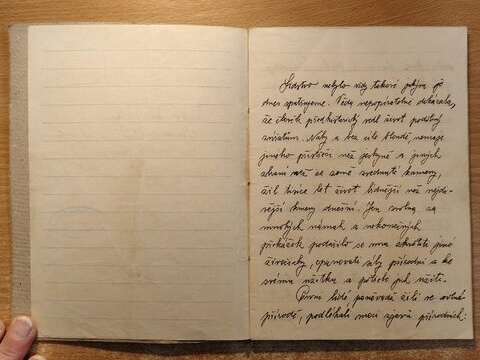 Lidstvo nebylo vždy takové jakým je
dnes spatřujeme. Věda nepopiratelně dokázala,
že člověk předhistorický vedl život podobný
zvířatům. Nahý a bez cíle bloudě, nemaje
jiného přístřeší než jeskyně a jiných
zbraní než ze země zvednuté kameny,
žil tisíce let život bídnější než nejdi-
vější kmeny dnešní. Jen zvolna za
mnohých námah a nekonečných
překážek podařilo se mu zkrotiti jiné
živočichy, opanovati síly přírodní a ke
svému užitku a potřebě jich užíti.
První lidé, poněvadž žili ve volné
přírodě, podléhali moci zjevů přírodních: